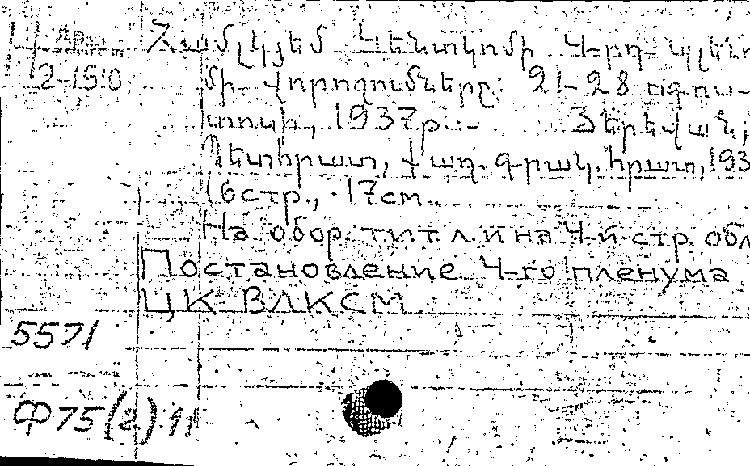 Др
2-150
Համլկյեմ Կենտկոմի 4-րդ պլեն
մի վորոշումները: 21-28 ոգոս-
տոսի, 1937թ.- Յերեվան,
Պետհրատ, քաղ. գրակ. հրատ, 193
16стр., 17см.
На обор. тит. л. и на 4-й стр. обл
Постановление 4-го пленума
ЦК ВЛКСМ
5571
Ф75(2).11